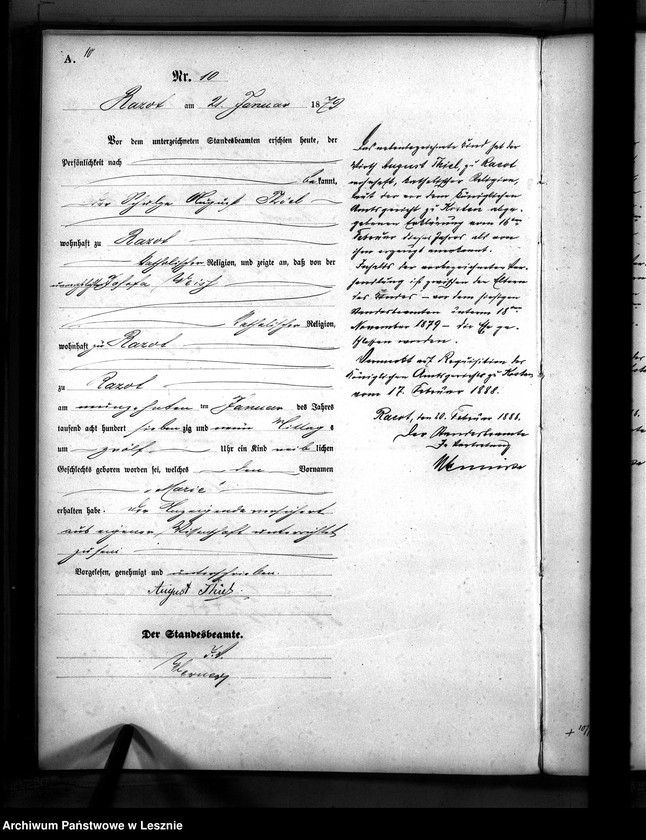 A. 10
Nr. 10
Razot am 21 Januar 1879
Vor dem unterzeichneten Standesbeamten erschien heute, der
Persönlichkeit nach
bekannt,
der August Thiel
wohnhaft zu Razot
katholischer Religion, und zeigte an, daß von der
Josefa
katholischer Religion,
wohnhaft zu Razot
zu Razot
am neunzehnten ten Januar des Jahres
tausend acht hundert siebenzig und neun Mittags
um zwölf Uhr ein Kind weiblichen
Geschlechts geboren worden sei, welches den Vornamen
Marie
erhalten habe. Der Anzeigende versichert
aus eigener Wissenschaft unterrichtet
zu sein
Vorgelesen, genehmigt und unterschrieben.
August Thiel.
Der Standesbeamte.
J. V.
Das nebenbezeichnete Kind hat der
Wirth August Thiel, zu Razot
wohnhaft, katholischer Religion,
mit der vor dem Königlichen
Amtsgericht zu Kosten abge-
gebenen Erklärung vom 16ten
Februar dieses Jahres als von
ihm erzeugt anerkannt.
Inhalts der vorbezeichneten Ver-
handlung ist zwischen den Eltern
des Kindes – vor dem hiesigen
Standesbeamten unterm 18ten
November 1879 – die Ehe ge-
schlossen worden.
Vermerkt auf Requisition des
Königlichen Amtsgerichts zu Kosten
vom 17. Februar 1888.
Razot, den 20. Februar 1888.
Der Standesbeamte
In Vertretung
Archiwum Państwowe w Lesznie